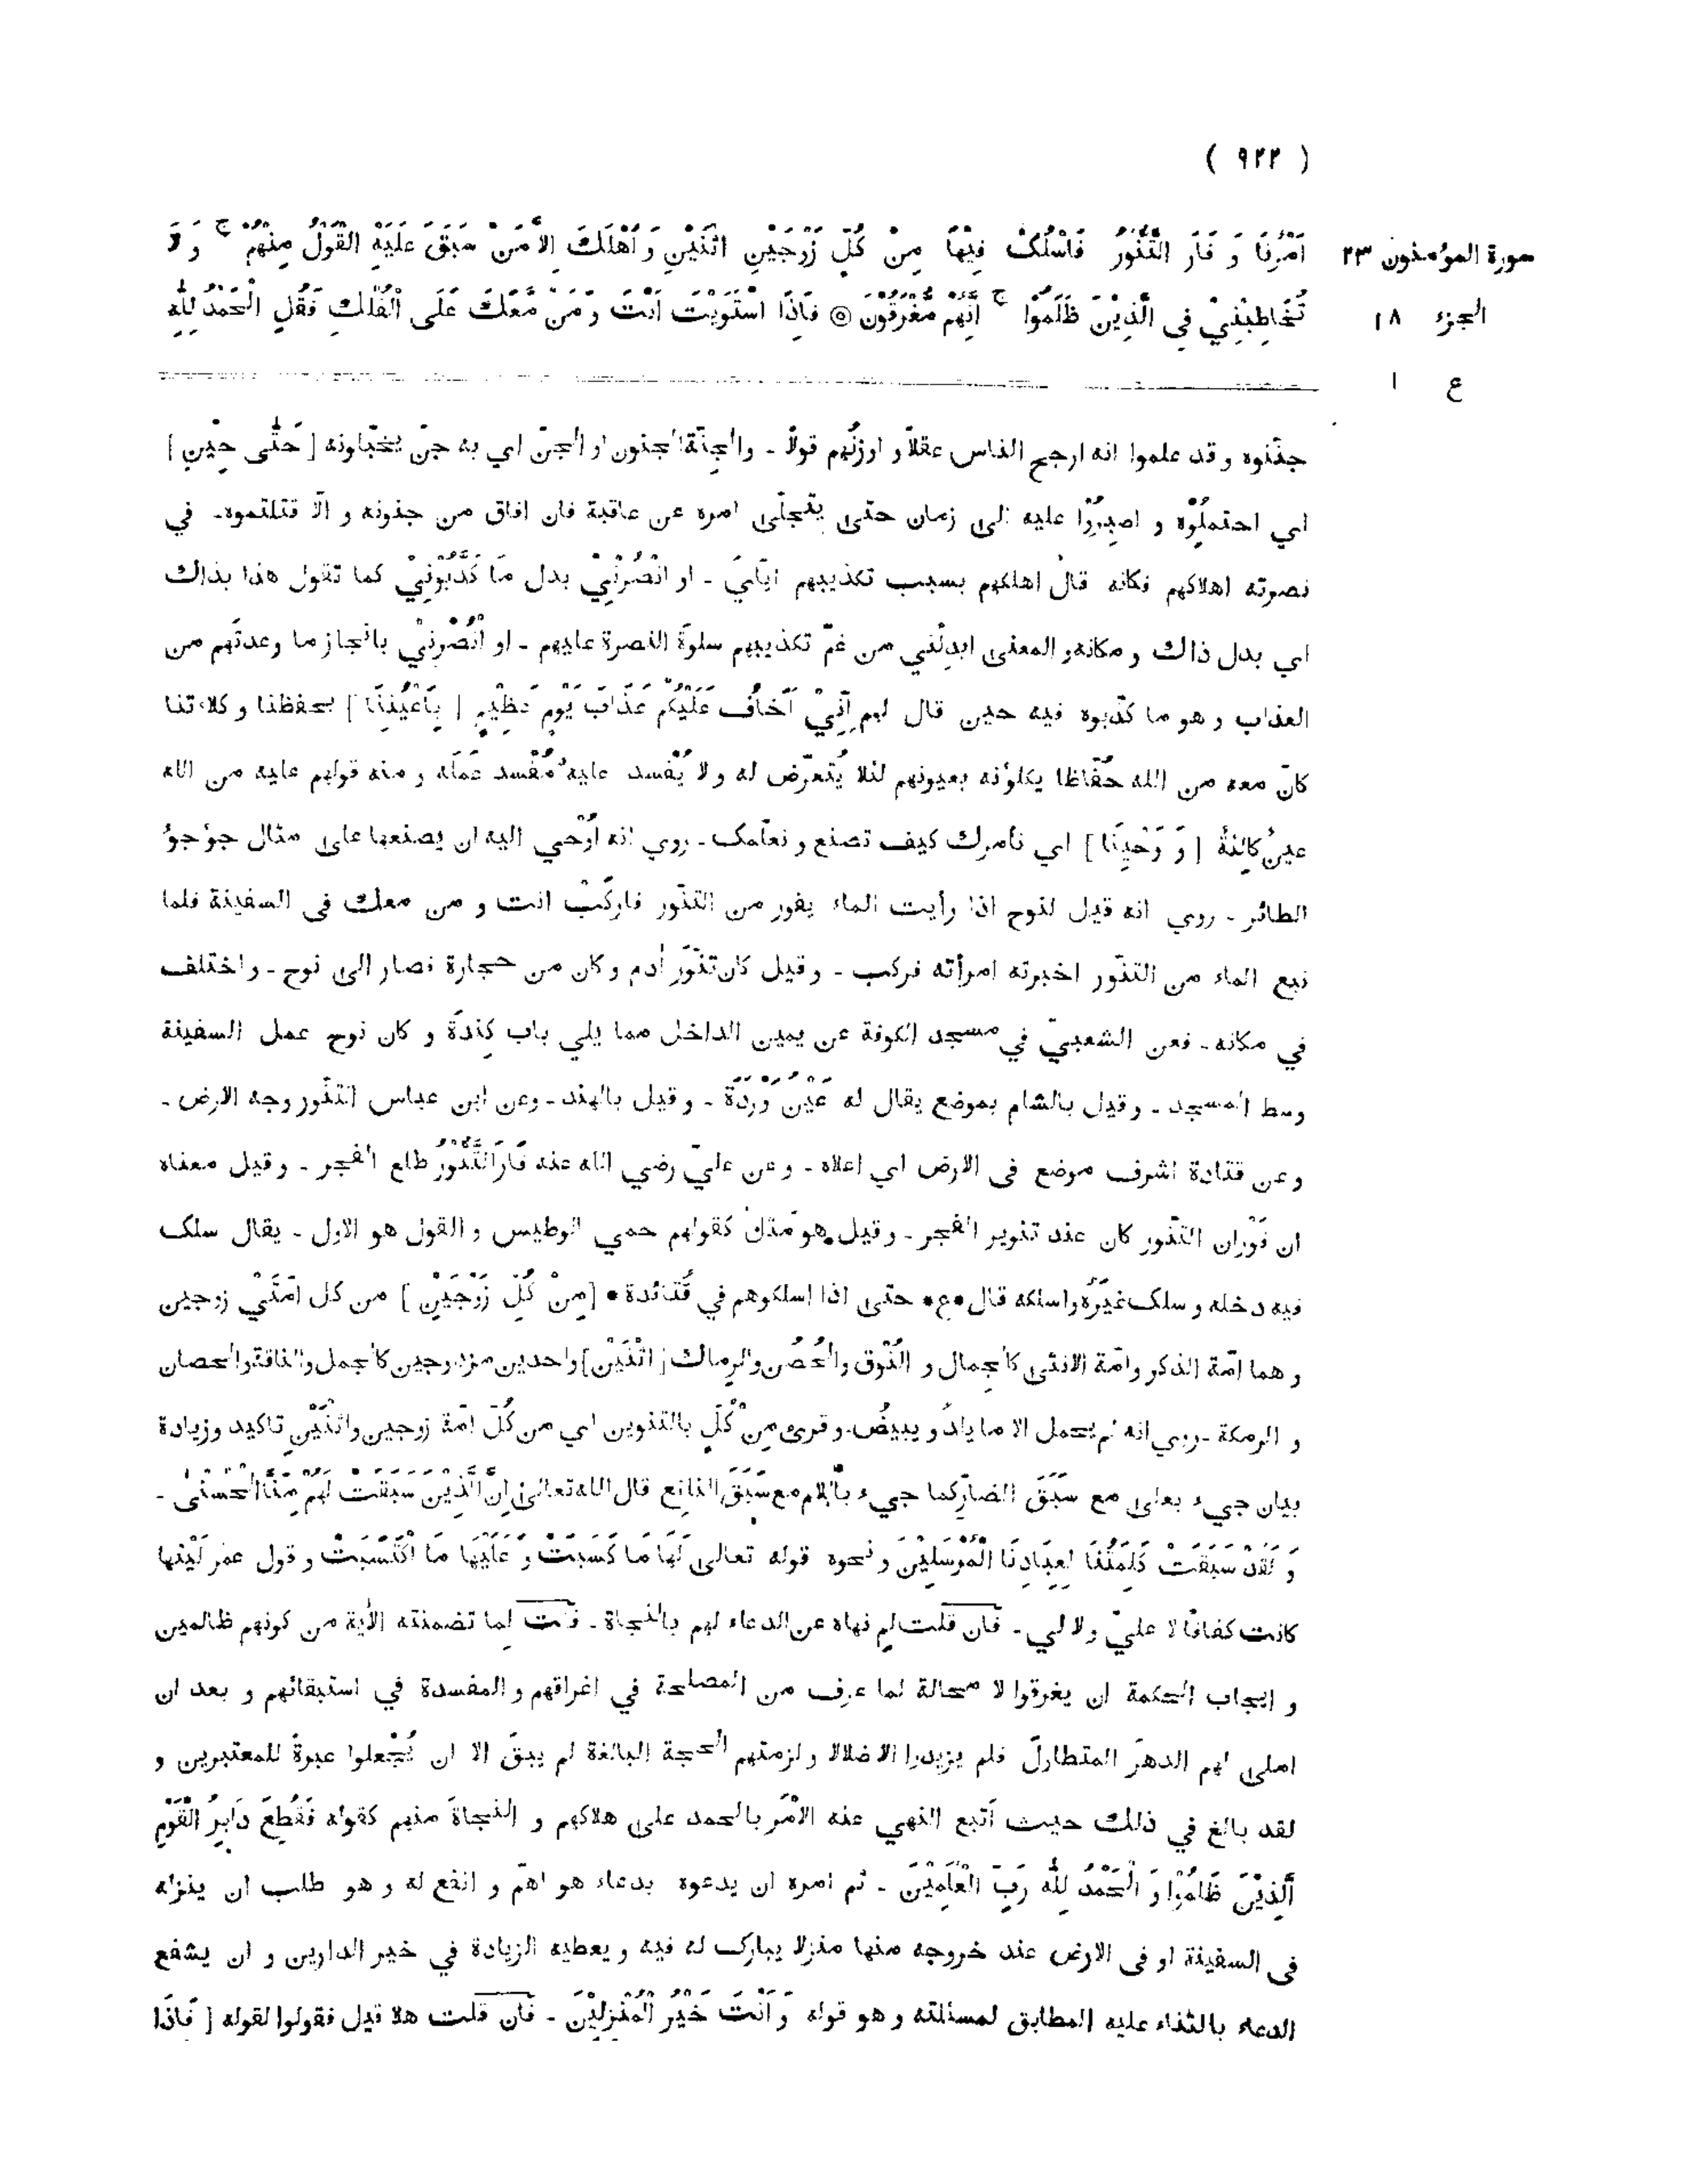 ( ٩٢٢ )
سورة المؤمنون ٢٣
الجزء ١٨
ع ١
اَمْرُنَا وَ فَارَ التَّنُّوْرُ فَاسْلُكْ فِيْهَا مِنْ كُلِّ زَوْجَيْنِ اثْنَيْنِ وَ اَهْلَكَ اِلَّا مَنْ سَبَقَ عَلَيْهِ الْقَوْلُ مِنْهُمْ ج وَ لَا
تُخَاطِبْنِيْ فِي الَّذِيْنَ ظَلَمُوْا ج اِنَّهُمْ مُّغْرَقُوْنَ ۝ فَاِذَا اسْتَوَيْتَ اَنْتَ وَ مَنْ مَّعَكَ عَلَى الْفُلْكِ فَقُلِ الْحَمْدُ لِلّٰهِ
جنّنوه و قد علموا انه ارجح الناس عقلاً و اوزنُهم قولاً - والجِنّة الجنون او الجنّ اي به جنّ يخبّلونه [ حَتّٰى حِيْنٍ ]
اي احتملُوْه و اصبِرُوْا عليه الى زمان حتى ينجلّى امره عن عاقبة فان افاق من جنونه و الّا قتلتموه - في
نصرته اهلاكهم فكانه قال اهلكهم بسبب تكذيبهم ايّايَ - او انْصُرْنِيْ بدل مَا كَذَّبُوْنِيْ كما تقول هذا بذاك
اي بدل ذاك و مكانه و المعنى ابدِلْني من غمّ تكذيبهم سلوةَ النصرة عليهم - او اُنْصُرْنِيْ بانجاز ما وعدتَهم من
العذاب و هو ما كذّبوه فيه حين قال لهم اِنِّيْ اَخَافُ عَلَيْكُمْ عَذَابَ يَوْمٍ عَظِيْمٍ [ بِاَعْيُنِنَا ] بحفظنا و كلاءتنا
كانّ معه من الله حُفّاظا يكلؤنه بعيونهم لئلا يُتعرّض له ولا يُفْسد عليه مُفْسد عَمَلَه و منه قولهم عليه من الله
عينٌ كالِئةٌ [ وَ وَحْيِنَا ] اي نأمرك كيف تصنع و نعلّمك - روي انه اُوْحي اليه ان يصنعها على مثال جؤجؤ
الطائر - روي انه قيل لنوح اذا رأيت الماء يفور من التنّور فاركَبْ انت و من معك فى السفينة فلما
نبع الماء من التنّور اخبرته امرأته فركب - و قيل كان تنّورَ اٰدم و كان من حجارة فصار الى نوح - و اختلف
في مكانه - فعن الشعبيّ في مسجد الكوفة عن يمين الداخل مما يلي باب كِنْدةَ و كان نوح عمل السفينة
وسط المسجد - و قيل بالشام بموضع يقال له عَيْنُ وَرْدَةَ - و قيل بالهند - وعن ابن عباس التنّور وجه الارض -
و عن قتادة اشرف موضع فى الارض اي اعلاه - و عن عليّ رضي الله عنه فَارَ التَّنُّوْرُ طلع الفجر - و قيل معناه
ان فَوَران التنّور كان عند تنوير الفجر - و قيل هو مَثل كقولهم حمي الوطيس و القول هو الاول - يقال سلك
فيه دخله و سلك غيرَه و اسلكه قال • ع • حتى اذا اسلكوهم في قُتائدة • [ مِنْ كُلِّ زَوْجَيْنِ ] من كل اُمّتَيْ زوجين
و هما امّة الذكر و امّة الانثى كالجمال و النُوْق والحُصُن والرِماك [ اثْنَيْنِ ] واحدين مزدوجين كالجمل والناقة والحصان
و الرمكة - روي انه لم يحمل الا ما يلد و يبيض - و قرئ مِنْ كُلٍّ بالتنوين اي من كُلّ امّة زوجين واثْنَيْنِ تاكيد و زيادة
بيان جيء بعلى مع سَبَقَ الضارّ كما جيء باللام مع سَبَقَ النافع قال الله تعالى اِنَّ الَّذِيْنَ سَبَقَتْ لَهُمْ مِّنَّا الْحُسْنٰى -
وَ لَقَدْ سَبَقَتْ كَلِمَتُنَا لِعِبَادِنَا الْمُرْسَلِيْنَ و نحوه قوله تعالى لَهَا مَا كَسَبَتْ وَ عَلَيْهَا مَا اكْتَسَبَتْ و قول عمر لَيْتها
كانت كفافًا لا عليّ ولا لي - فان قلت لم نهاه عن الدعاء لهم بالنجاة - قلت لِما تضمنته الاٰية من كونهم ظالمين
و ايجاب الحكمة ان يغرقوا لا محالة لما عرف من المصلحة في اغراقهم و المفسدة في استبقائهم و بعد ان
املى لهم الدهرَ المتطاولَ فلم يزيدوا الا ضلالا و لزمتهم الحجة البالغة لم يبقَ الا ان يُجْعلوا عبرةً للمعتبرين و
لقد بالغ في ذلك حيث اتبع النهي عنه الاَمْرَ بالحمد على هلاكهم و النجاةَ منهم كقوله فَقُطِعَ دَابِرُ الْقَوْمِ
الَّذِيْنَ ظَلَمُوْا وَ الْحَمْدُ لِلّٰهِ رَبِّ الْعٰلَمِيْنَ - ثم امره ان يدعوه بدعاء هو اهمّ و انفع له و هو طلب ان ينزله
فى السفينة او فى الارض عند خروجه منها منزلا يبارك له فيه و يعطيه الزيادة في خير الدارين و ان يشفع
الدعاء بالثناء عليه المطابق لمسئلته و هو قوله وَ اَنْتَ خَيْرُ الْمُنْزِلِيْنَ - فان قلت هلا قيل فقولوا لقوله [ فَاِذَا